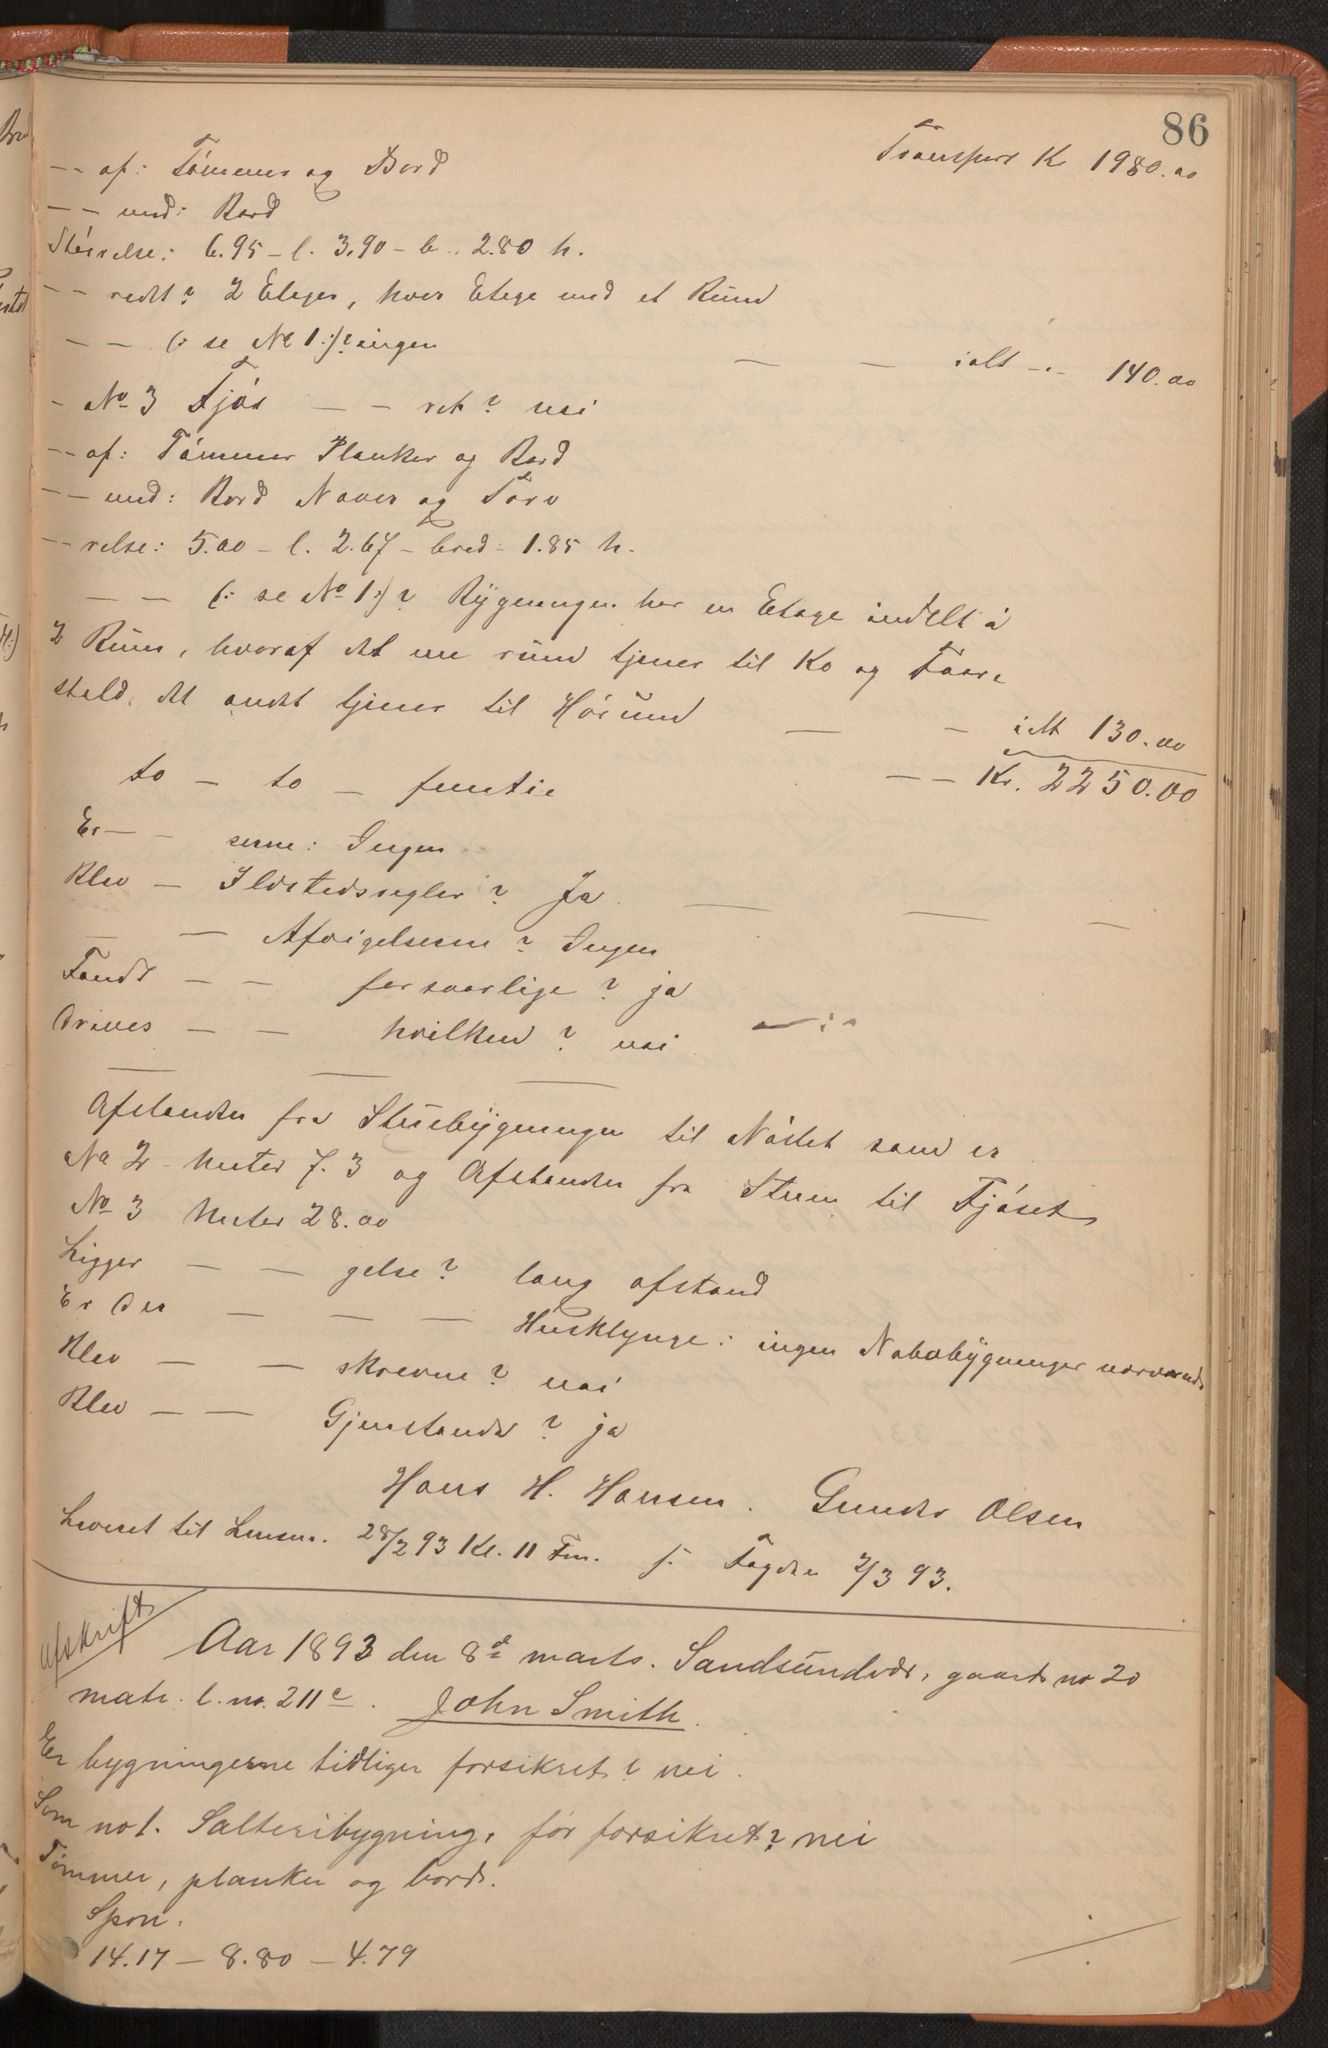 86
Transport K 1980.00
-- af: Tømmer og Bord
-- med: Bord
Størrelse: 6.95 - l. 3.90 - b.. 2.80 h.
-- redt? 2 Etager, hver Etage med et Rum
-- (: se No 1:)? ingen — — ialt -"- 140.00
- No 3 Fjøs -- ret? nei
-- af: Tømmer Planker og Bord
-- med: Bord Næver og Torv
-- relse: 5.00 - l. 2.67 - bred: 1.85 h.
-- (: se No 1:)? Bygningen har en Etage indelt i
2 Rum, hvoraf det ene rum tjener til Ko og Faare
stald, det andet tjener til Hørum — - ialt 130.00
to - to - femtie -- Kr. 2250.00
Er -- serne: Ingen
Blev - Ildstedsregler? Ja — — —
— - Afvigelserne? Ingen
Fandt -- forsvarlige? ja
Drives -- hvilken? nei
Afstanden fra Stuebygningen til Nøstet som er
No 2 - meter 7.3 og Afstanden fra Stuen til Fjøset
No 3 meter 28.00
Ligger -- gelse? lang afstand
Er der — — — Husklynge: ingen Nabobygninger nærværende
Blev — — skrevne? nei
Blev — — Gjenstande? ja
Hans H. Hansen. Gunder Olsen
Leveret til Lensm. 28/2 93 Kl. 11 Fm. f. Fogden 2/3 93.
Afskrift
Aar 1893 den 8de marts. Sandsundvær, gaards no 20
matr. l. no. 211c. John Smith.
Er bygningerne tidliger forsikret? nei.
Som no 1. Salteribygning, før forsikret? nei
Tømmer, planker og bord.
Spon.
14.17 — 8.80 — 4.79